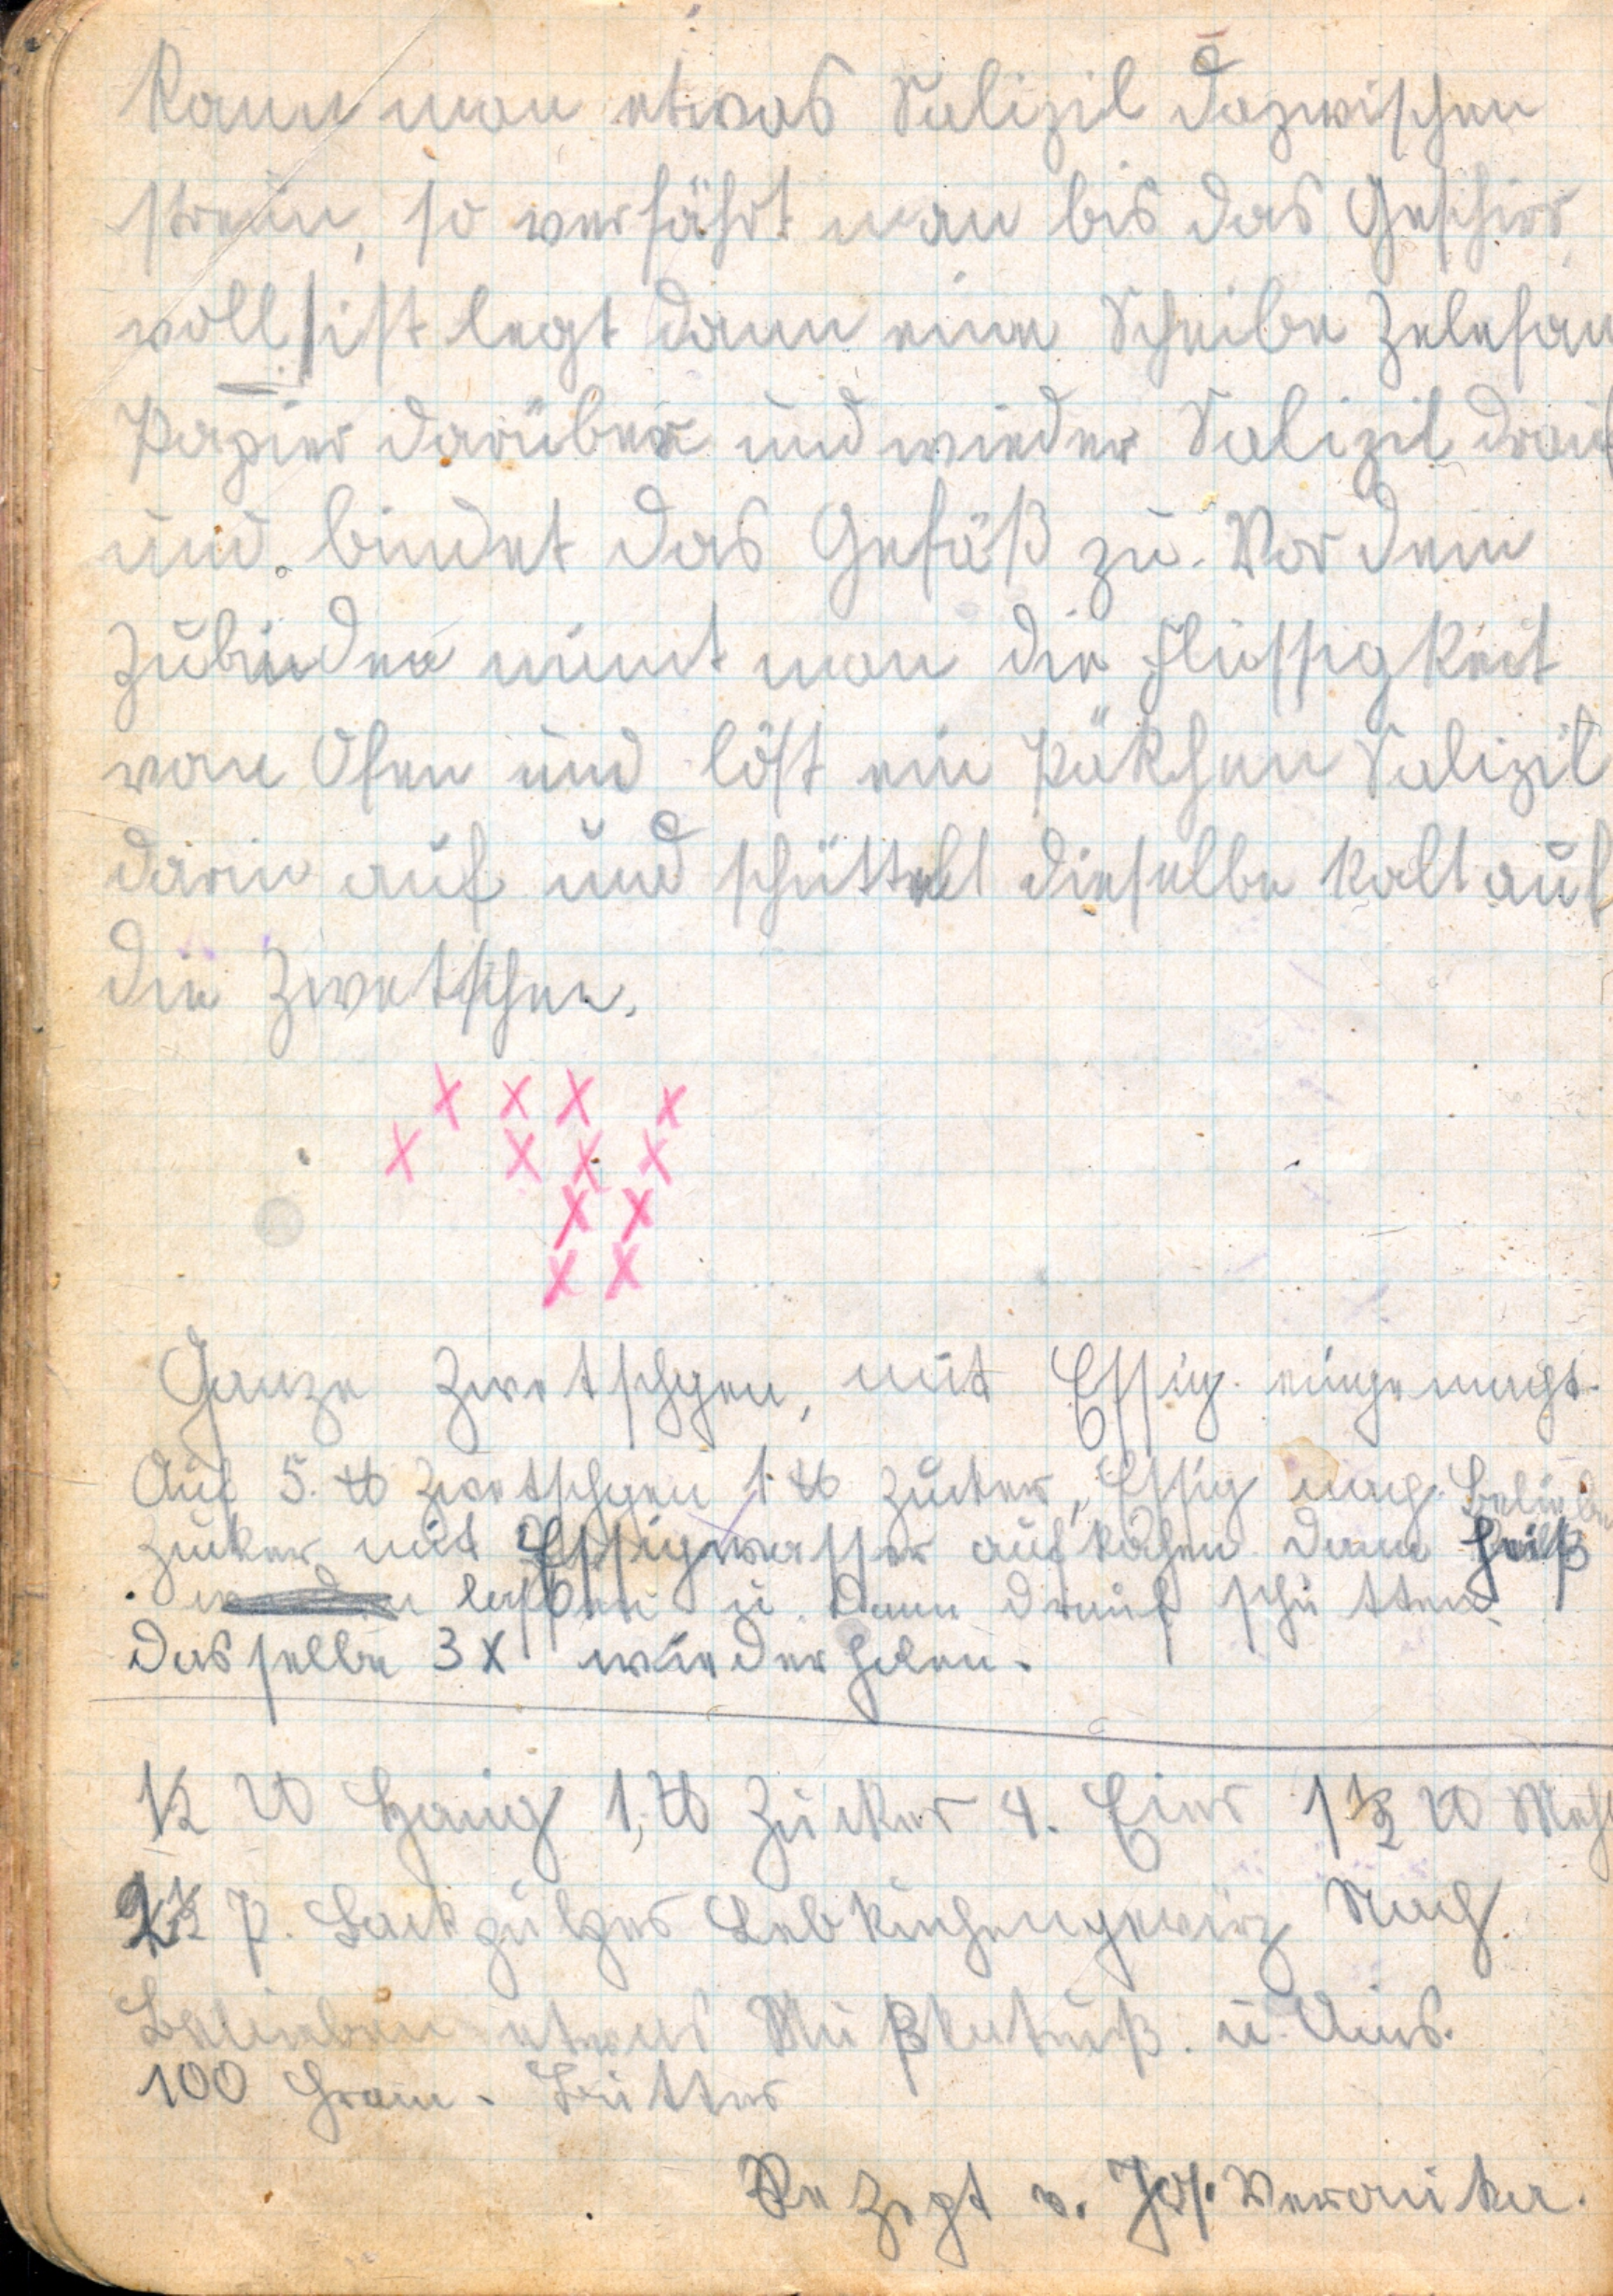 Kann man etwas Salizil dazwischen
streun, so verfährt man bis das Geschirr
voll ist legt dann eine Scheibe Zelefan
Papier darüber und wieder Salizil drauf
und bindet das Gefäß zu. Vor dem
Zubinden nimt man die Flüssigkeit
von Ofen und löst ein Päkchen Salizil
darin auf und schüttelt dieselbe kalt auf
die Zwetschen.
x x x x
x x x x
x x
x x
Ganze Zwetschgen, mit Essig eingemacht.
Auf 5. ℔ Zwetschgen 1 ℔ Zucker, Essig nach Belieben
Zucker mit Essigwasser aufkochen dann heiß
laßen u. dann drauf schütten.
Dasselbe 3 x wiederholen.
1/2 ℔ Honig 1, ℔ Zucker 4. Eier 1 1/2 ℔ Mehl
P. Backpulfer Lebkuchengewürz Nach
Belieben etwas Mußkatnuß. u. Anis.
100 Gram. Butter
Rezept v. Jos. Veronika.